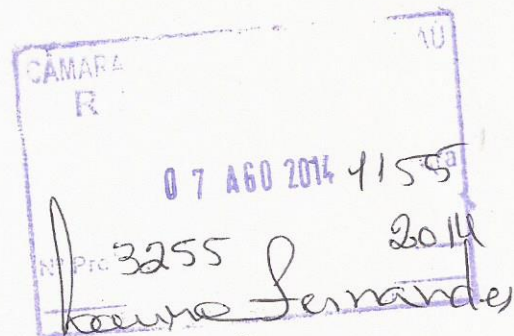 CÂMARA
R
07 AGO 2014 1155
Nº Pro 3255 2014
Fernandes